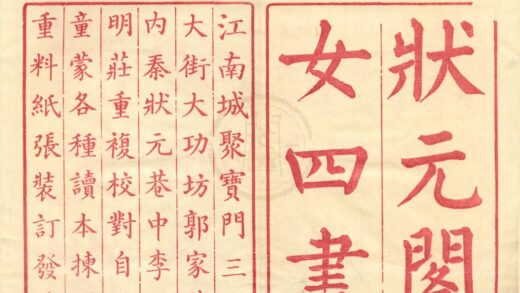 狀元閣
女四書
江南城聚寶門三
大街大功坊郭家
內秦狀元巷中李
明莊重複校對自
童蒙各種讀本揀
重料紙張裝訂發